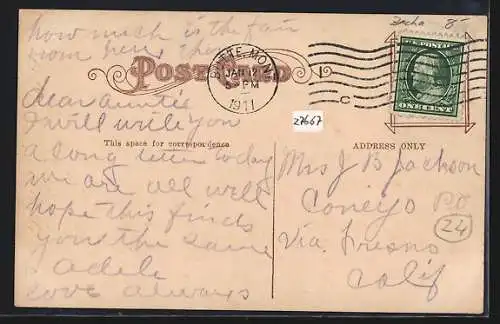 how much is the fair
from here there
POST CARD
BUTTE, MONT.
JAN 12
PM
1911
C
U.S. POSTAGE
ONE CENT
8-
27667
dear auntie
I will write you
a long letter today
we are all well
hope this finds
you the same
adele
love always
This space for correspondence
ADDRESS ONLY
Mrs J B Jackson
Coneyo PO
24
Via Fresno
Calif